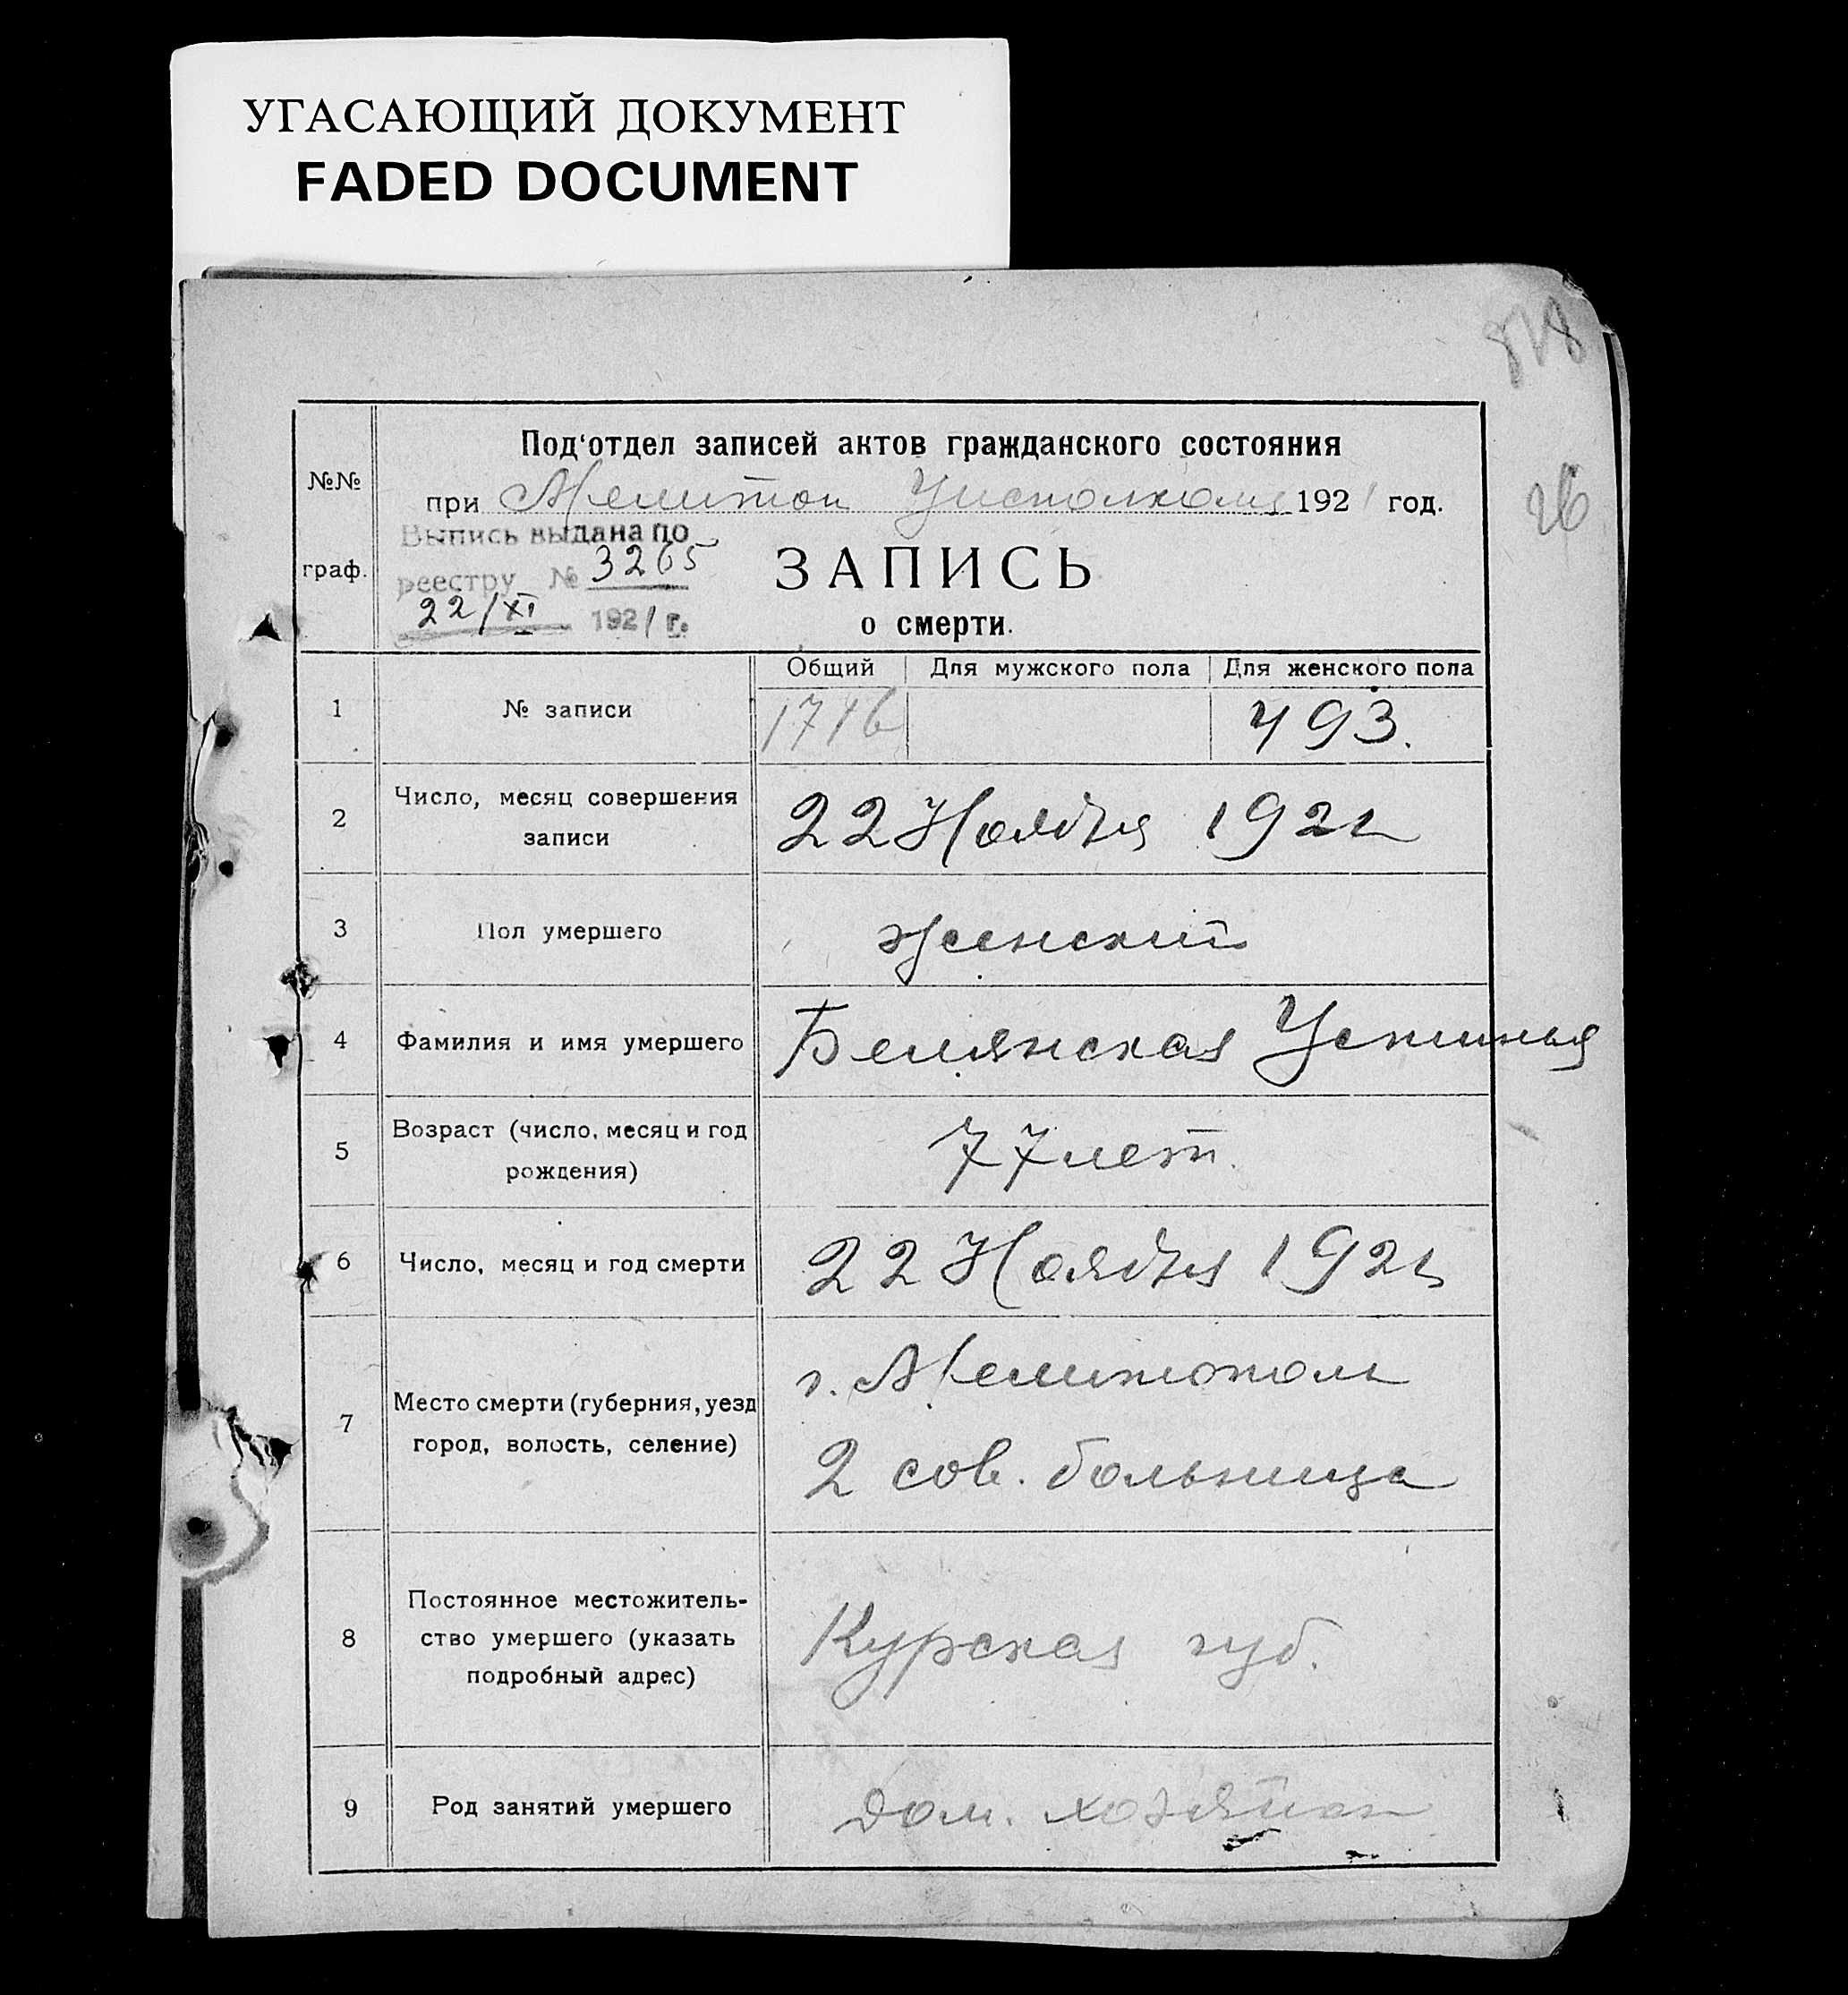 УГАСАЮЩИЙ ДОКУМЕНТ
FADED DOCUMENT
818
26
№№
граф.
Под'отдел записей актов гражданского состояния
при Мелитоп Уисполкома 1921 год.
Выпись выдана по
реестру № 3265
22/XI 1921 г.
ЗАПИСЬ
о смерти.
Общий Для мужского пола Для женского пола
1 № записи 1716 493.
2 Число, месяц совершения
записи
22 Ноября 1921
3 Пол умершего женский
4 Фамилия и имя умершего Белянская Устинья
5 Возраст (число, месяц и год
рождения)
77 лет.
6 Число, месяц и год смерти 22 Ноября 1921
7 Место смерти (губерния, уезд
город, волость, селение)
г. Мелитополь
2 сов. больница
8 Постоянное местожитель-
ство умершего (указать
подробный адрес)
Курская губ.
9 Род занятий умершего дом. хозяйка